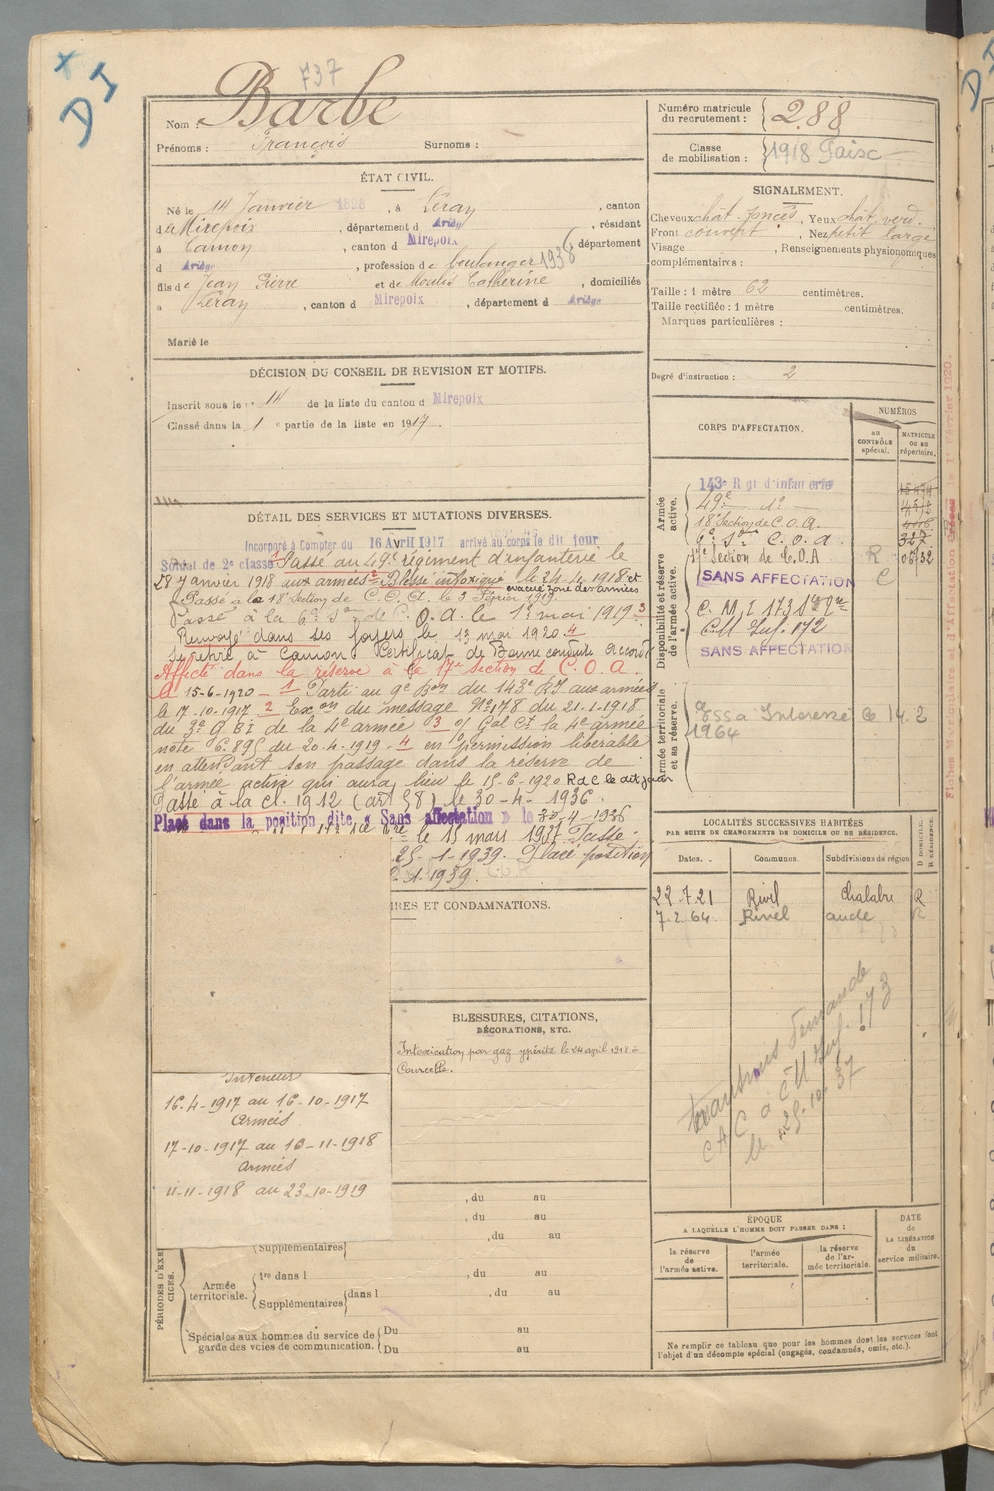 737
Nom : Barbe
Prénoms : François Surnoms :
Numéro matricule du recrutement : 288
Classe de mobilisation : 1918
ÉTAT CIVIL.
Né le 14 Janvier 1898, à Léran, canton
d e Mirepoix, département d Ariège, résidant
à Camon, canton d Mirepoix, département
d Ariège, profession de boulanger 1938
fils de Jean Pierre et de Moulis Catherine, domiciliés
à Léran, canton d Mirepoix, département d Ariège
Marié le
SIGNALEMENT.
Cheveux chât. foncés, Yeux chât. verd.
Front couvert, Nez petit large
Visage , Renseignements physionomiques
complémentaires :
Taille : 1 mètre 62 centimètres.
Taille rectifiée : 1 mètre centimètres.
Marques particulières :
Degré d'instruction : 2
DÉCISION DU CONSEIL DE REVISION ET MOTIFS.
Inscrit sous le n° 14 de la liste du canton d Mirepoix
Classé dans la 1 e partie de la liste en 1917
DÉTAIL DES SERVICES ET MUTATIONS DIVERSES.
Incorporé à Compter du 16 Avril 1917 arrivé au corps le dit jour
Soldat de 2e classe 1 Passé au 49e régiment d'infanterie le
27 janvier 1918 aux armées 2 Blessé intoxiqué le 24-4-1918 et
évacué zone des armées
Passé à la 18e Section de C.O.A. le 2 Février 1919
Passé à la 6e Son de C.O.A. le 1er mai 1919 3
Renvoyé dans ses foyers le 13 mai 1920 4
Se retire à Camon Certificat de Bonne conduite accordé
Affecté dans la réserve à la 17e section de C.O.A.
à 15-6-1920 – 1 Parti au 9e Bon du 143e RI aux armées
le 7-10-1917 2 Exon du message N° 178 du 21-1-1918
du 3e G. BI de la 4e armée 3 o/ Gal Ct la 4e armée
note 6.895 du 20-4-1919 – 4 en permission libérable
en attendant son passage dans la réserve de
l'armée active qui aura lieu le 15-6-1920 R d c le dit jour
Passé à la cl. 1912 (art 58) le 30-4-1936.
Placé dans la position dite « Sans affectation » le 30-4-1936
le 15 mars 1937 Passé
25-1-1939. Placé position
-1-1939.
IRES ET CONDAMNATIONS.
BLESSURES, CITATIONS,
DÉCORATIONS, ETC.
Intoxication par gaz ypérite le 24 avril 1918 à
Courcelle.
Intérieur
16-4-1917 au 16-10-1917
Armées
17-10-1917 au 10-11-1918
Armées
11-11-1918 au 23-10-1919
, du au
, du au
, du au
PÉRIODES D'EXERCICES.
Supplémentaires
Armée territoriale.
1re dans l , du au
Supplémentaires dans l , du au
Spéciales aux hommes du service de
garde des voies de communication.
Du au
Du au
CORPS D'AFFECTATION.
NUMÉROS
au CONTRÔLE spécial.
MATRICULE ou au répertoire.
Armée active.
143e Rgt d'infanterie
49e do
18e Section de C.O.A.
6e Son C.O.A. 327
Disponibilité et réserve de l'armée active.
17e Section de C.O.A R 06932
SANS AFFECTATION C
C.M.I 173
C.M Inf. 172
SANS AFFECTATION
Armée territoriale et sa réserve.
Intéressé le 14.2
1964
Fiches Matricules et d'Affectation le 1er Février 1920.
LOCALITÉS SUCCESSIVES HABITÉES
PAR SUITE DE CHANGEMENTS DE DOMICILE OU DE RÉSIDENCE.
Dates. Communes. Subdivisions de région D DOMICILE. R RÉSIDENCE.
22-7-21 Rivel Chalabre R
7.2.64 Rivel aude R
Demande
C A C à C M Inf. 173
le 25-10-37
ÉPOQUE
A LAQUELLE L'HOMME DOIT PASSER DANS :
DATE de LA LIBÉRATION du service militaire.
la réserve de l'armée active.
l'armée territoriale.
la réserve de l'armée territoriale.
Ne remplir ce tableau que pour les hommes dont les services font
l'objet d'un décompte spécial (engagés, condamnés, omis, etc.).